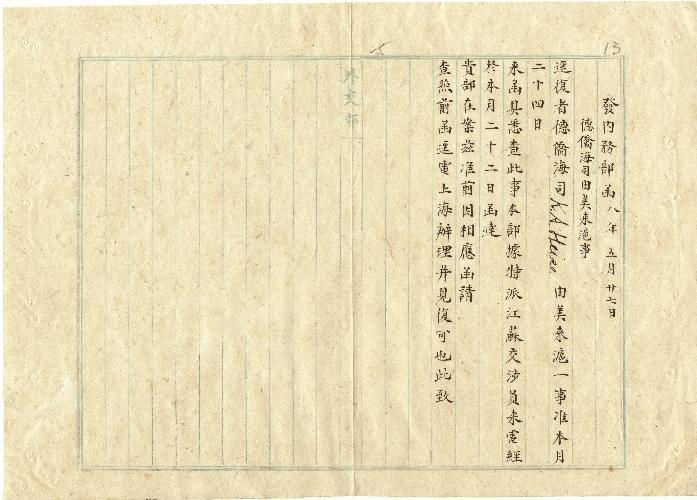 13
發內務部函 八年五月廿七日
德僑海司由美來滬事
逕復者德僑海司 由美來滬一事准本月
二十四日
來函具悉查此事本部據特派江蘇交涉員來電經
於本月二十二日函達
貴部在案茲准前因相應函請
查照前函逕電上海辦理并見復可也此致
外交部